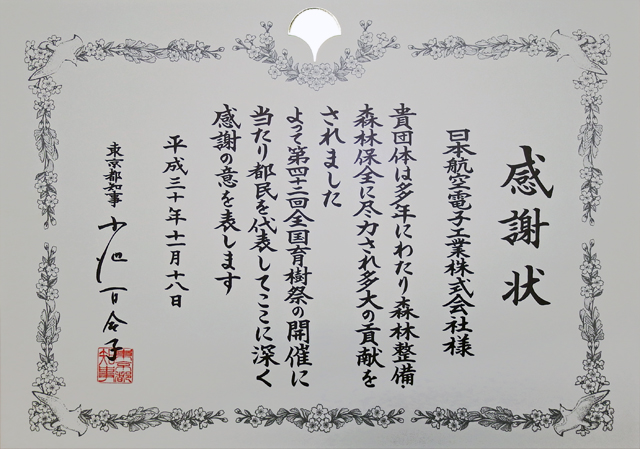 感謝状
日本航空電子工業株式会社様
貴団体は多年にわたり森林整備・
森林保全に尽力され多大の貢献を
されました
よって第四十二回全国育樹祭の開催に
当たり都民を代表してここに深く
感謝の意を表します
平成三十年十一月十八日
東京都知事 小池百合子
東京都知事